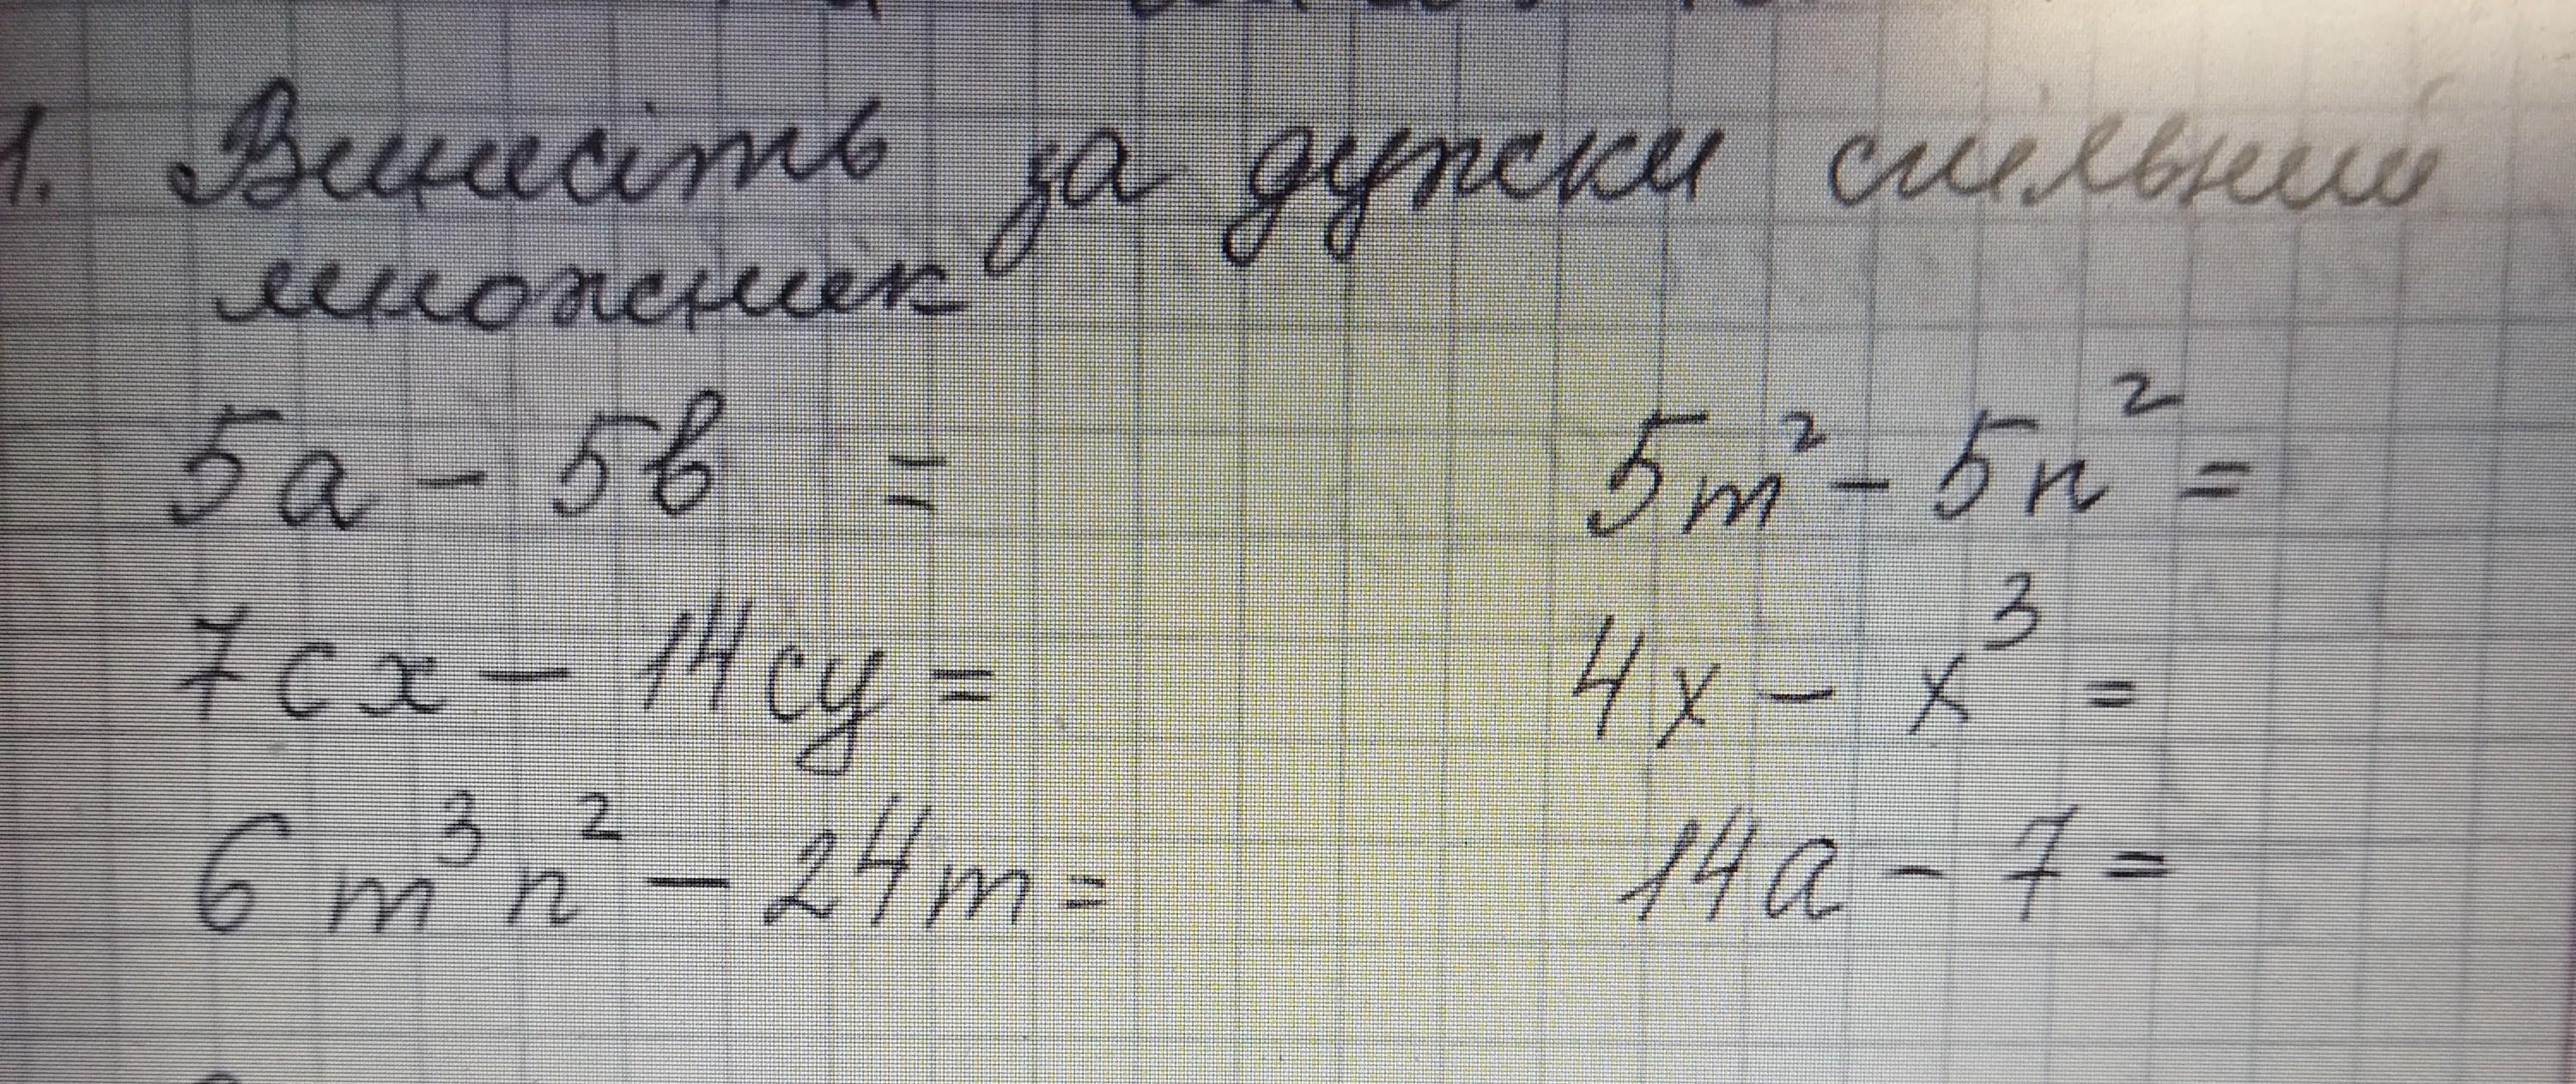 1. Винесіть за дужки спільний
множник
5a - 5b = 5m² - 5n² =
7cx - 14cy = 4x - x³ =
6m³n² - 24m = 14a - 7 =